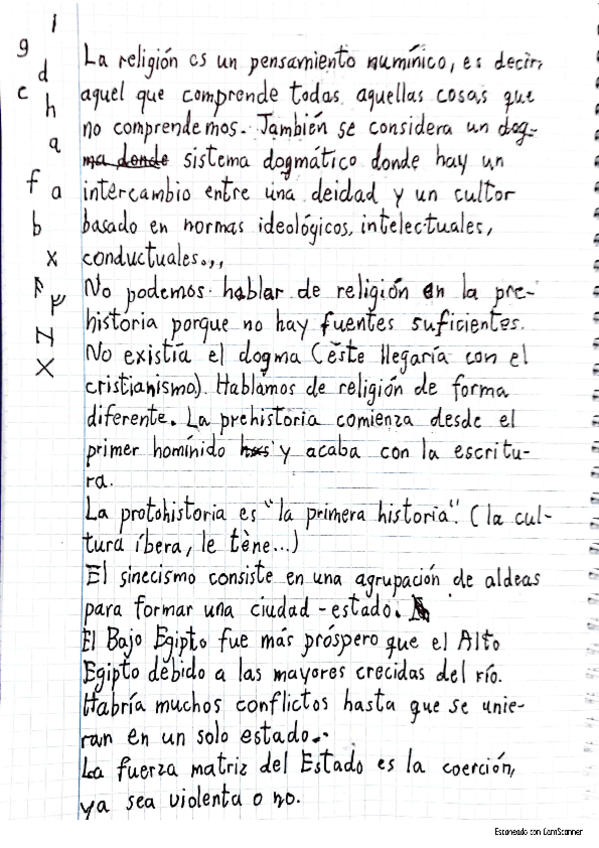 i
g
d
c
h
a
f a
b
x
N
X
La religión es un pensamiento numínico, es decir,
aquel que comprende todas aquellas cosas que
no comprendemos. También se considera un dog-
ma donde sistema dogmático donde hay un
intercambio entre una deidad y un cultor
basado en normas ideológicos, intelectuales,
conductuales...
No podemos hablar de religión en la pre-
historia porque no hay fuentes suficientes.
No existía el dogma (éste llegaría con el
cristianismo). Hablamos de religión de forma
diferente. La prehistoria comienza desde el
primer homínido y acaba con la escritu-
ra.
La protohistoria es "la primera historia". (la cul-
tura íbera, le tène...)
El sinecismo consiste en una agrupación de aldeas
para formar una ciudad-estado.
El Bajo Egipto fue más próspero que el Alto
Egipto debido a las mayores crecidas del río.
Habría muchos conflictos hasta que se unie-
ran en un solo estado..
La fuerza matriz del Estado es la coerción,
ya sea violenta o no.
Escaneado con CamScanner